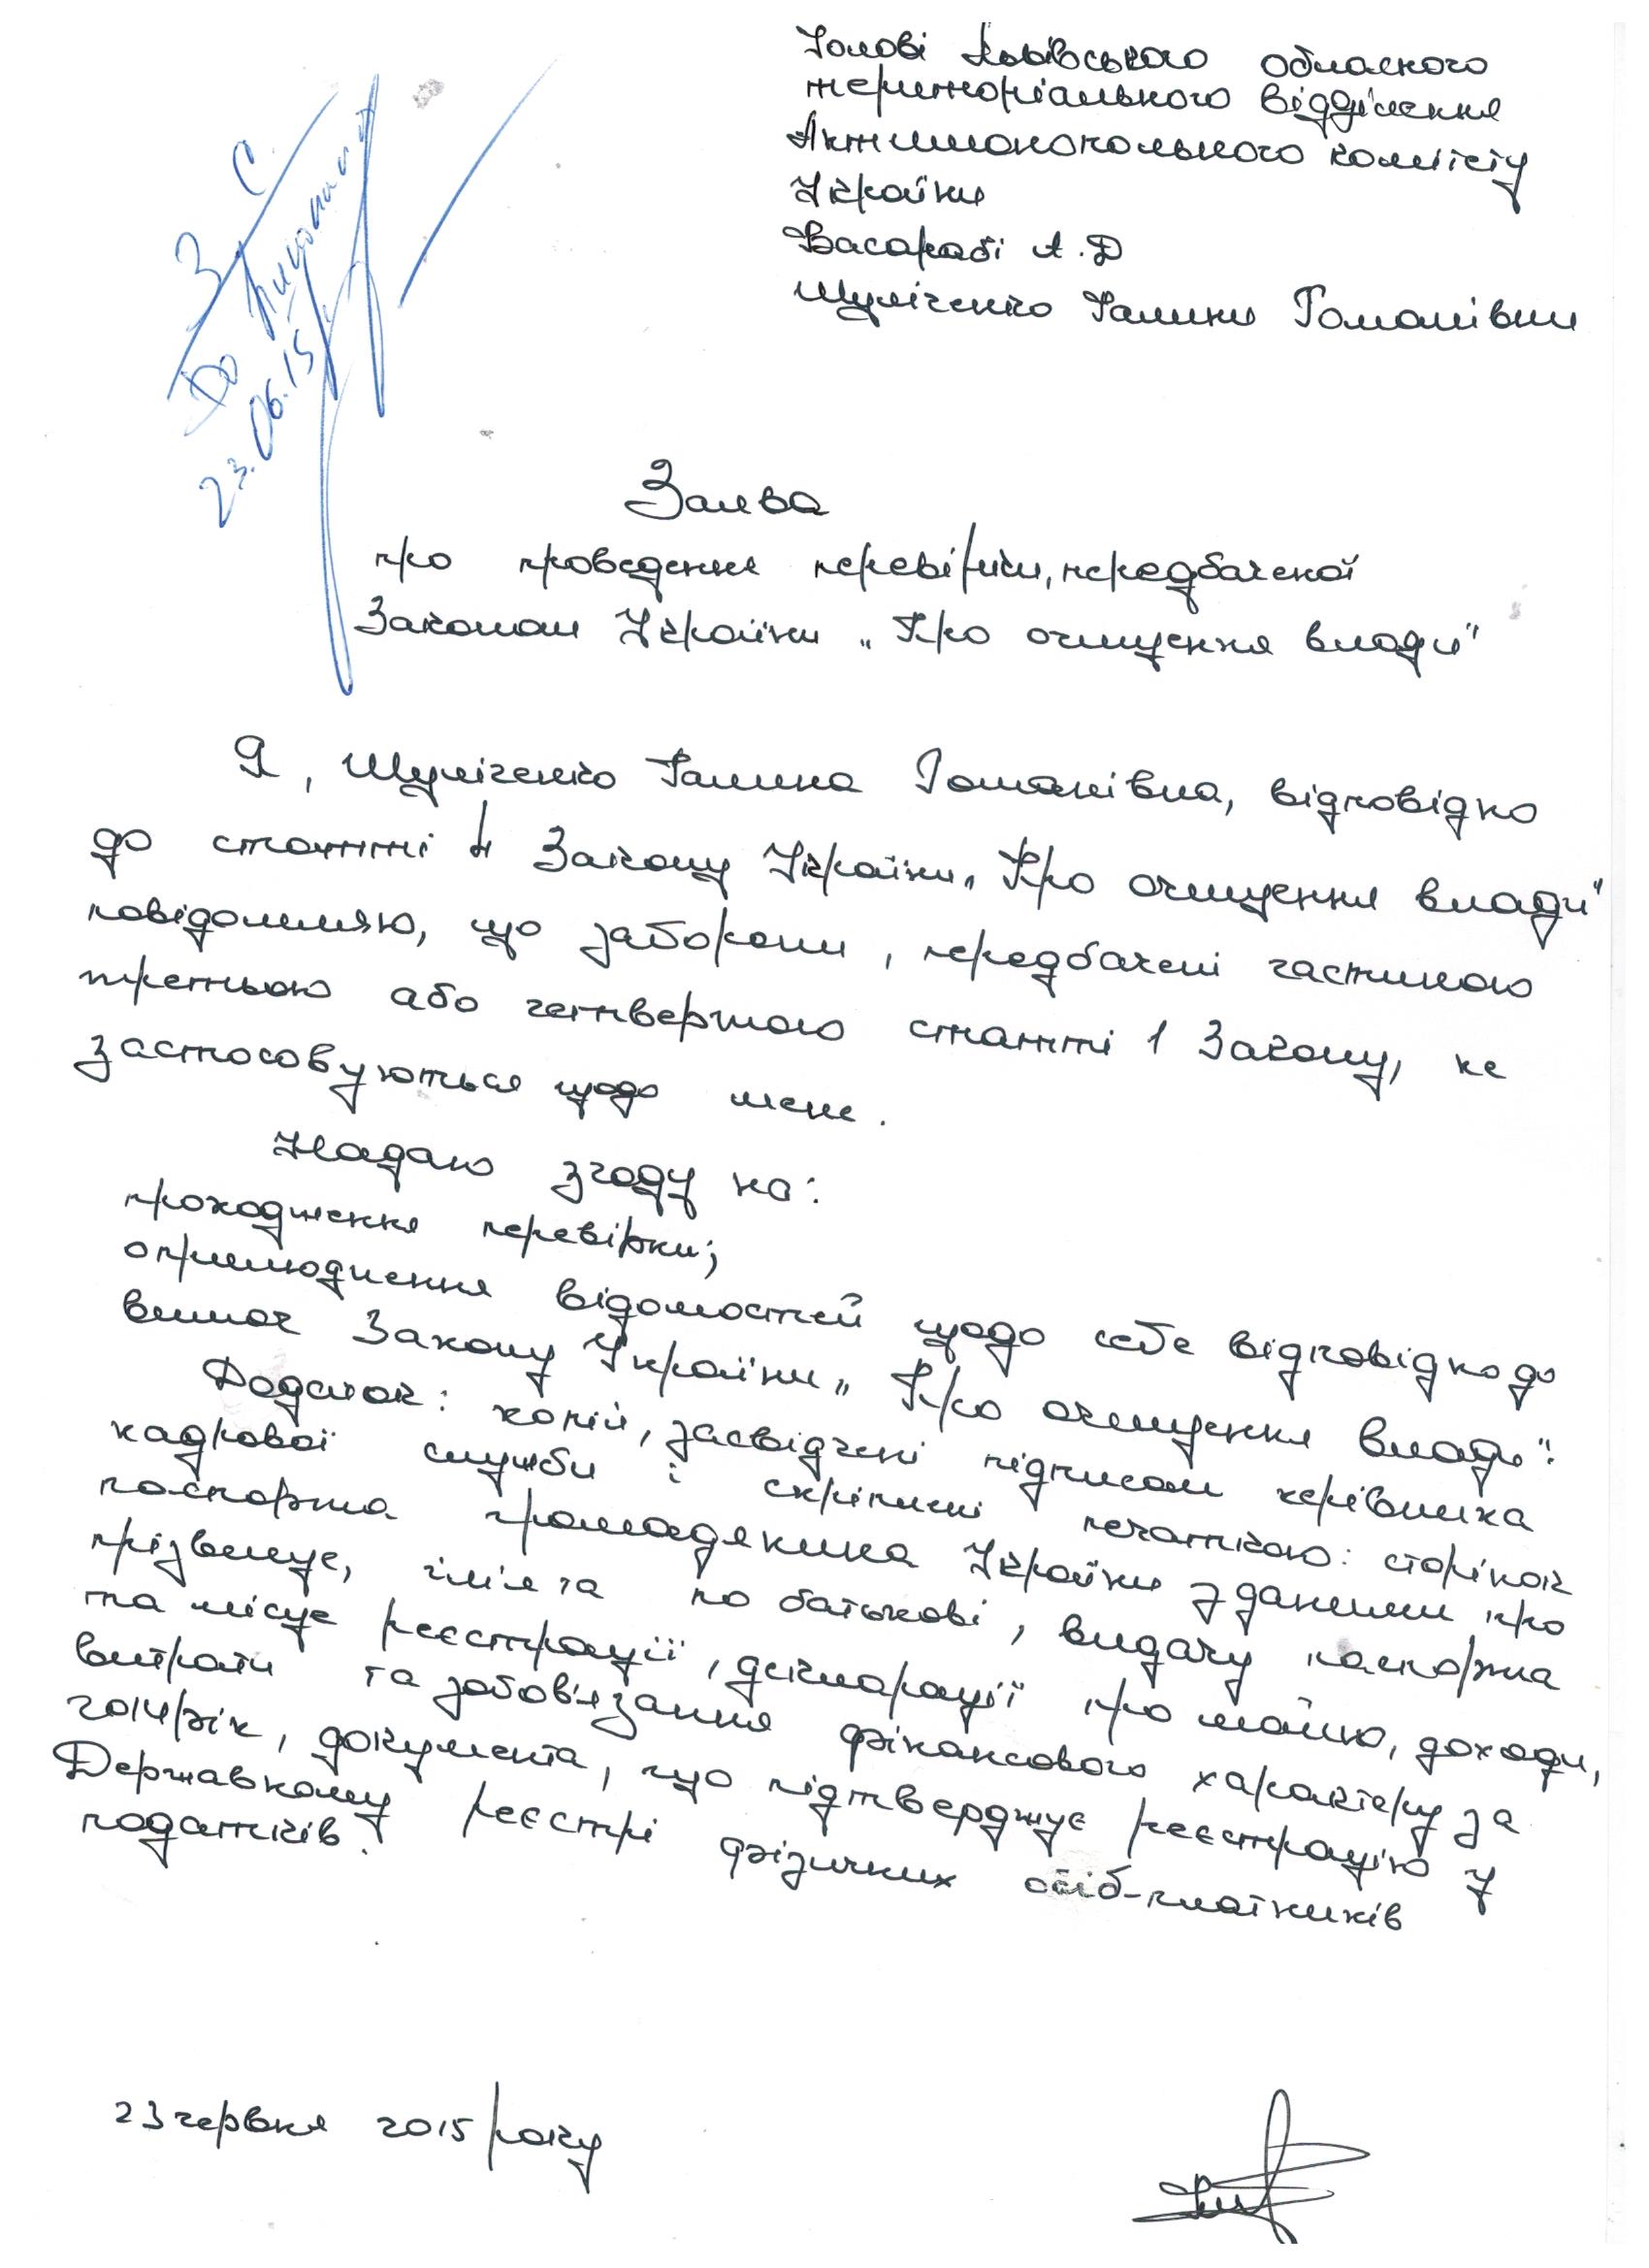 Голові Львівського обласного
територіального відділення
Антимонопольного комітету
України
Басарабі А.Д
Шуліченко Галини Романівни
З С.
До виконання
23.06.15
Заява
про проведення перевірки, передбаченої
Законом України „Про очищення влади"
Я, Шуліченко Галина Романівна, відповідно
до статті 4 Закону України „Про очищення влади"
повідомляю, що заборони, передбачені частиною
третьою або четвертою статті 1 Закону, не
застосовуються щодо мене.
Надаю згоду на:
проходження перевірки;
оприлюднення відомостей щодо себе відповідно до
вимог Закону України „Про очищення влади".
Додаток: копій, засвідчені підписом керівника
кадрової служби і скріплені печаткою: сторінок
паспорта громадянина України з даними про
прізвище, ім'я та по батькові, видачу паспорта
та місце реєстрації, декларації про майно, доходи,
витрати та зобов'язання фінансового характеру за
2014 рік, документа, що підтверджує реєстрацію у
Державному реєстрі фізичних осіб-платників
податків.
23 червня 2015 року